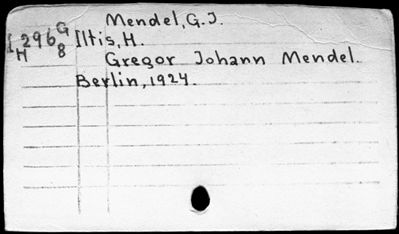 Mendel, G. J.
[296 G Iltis, H.
H 8 Gregor Johann Mendel.
Berlin, 1924.